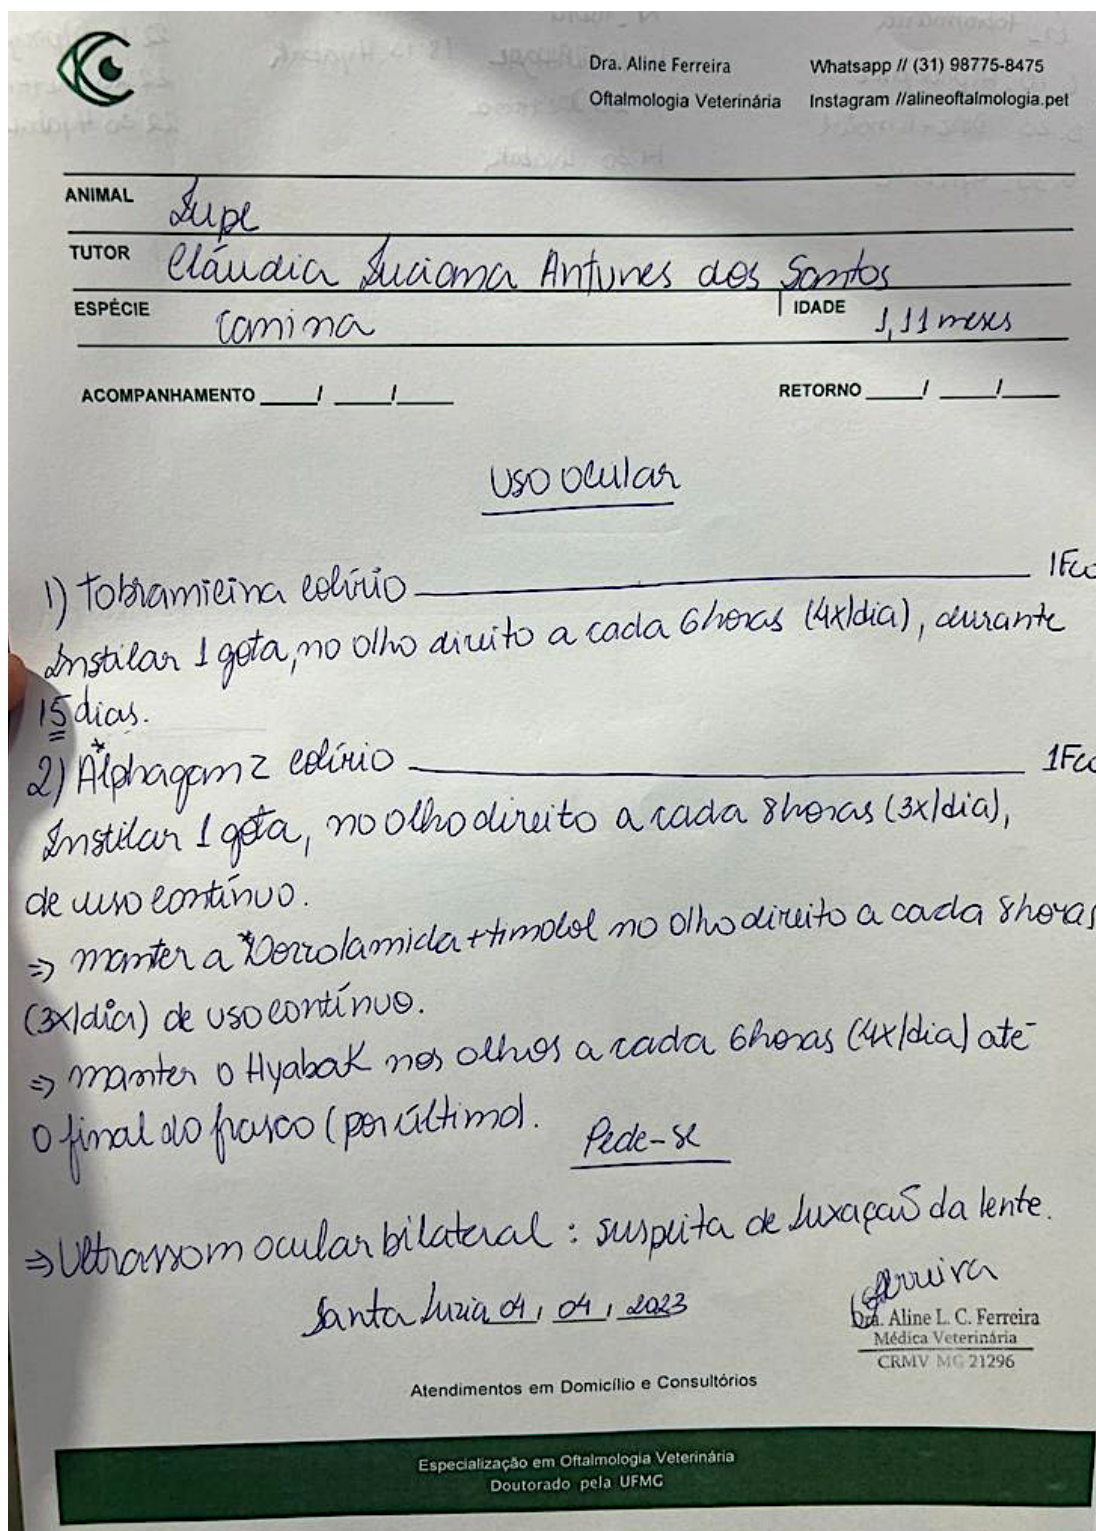 Dra. Aline Ferreira
Oftalmologia Veterinária
Whatsapp // (31) 98775-8475
Instagram //alineoftalmologia.pet
ANIMAL Lupe
TUTOR Cláudia Luciana Antunes dos Santos
ESPÉCIE Canina IDADE 1,11 meses
ACOMPANHAMENTO ___/ ___/___ RETORNO ___/ ___/___
Uso ocular
1) Tobramicina colírio ____ 1Fco
Instilar 1 gota, no olho direito a cada 6 horas (4x/dia), durante
15 dias.
2) *Alphagan Z colírio ____ 1Fco
Instilar 1 gota, no olho direito a cada 8 horas (3x/dia),
de uso contínuo.
⇒ manter a *Dorzolamida + timolol no olho direito a cada 8 horas
(3x/dia) de uso contínuo.
⇒ manter o Hyabak nos olhos a cada 6 horas (4x/dia) até
o final do frasco (por último).
Pede-se
⇒ Ultrassom ocular bilateral : suspeita de Luxação da lente.
Santa Luzia 04, 04, 2023
Ferreira
Dra. Aline L. C. Ferreira
Médica Veterinária
CRMV MG 21296
Atendimentos em Domicílio e Consultórios
Especialização em Oftalmologia Veterinária
Doutorado pela UFMG